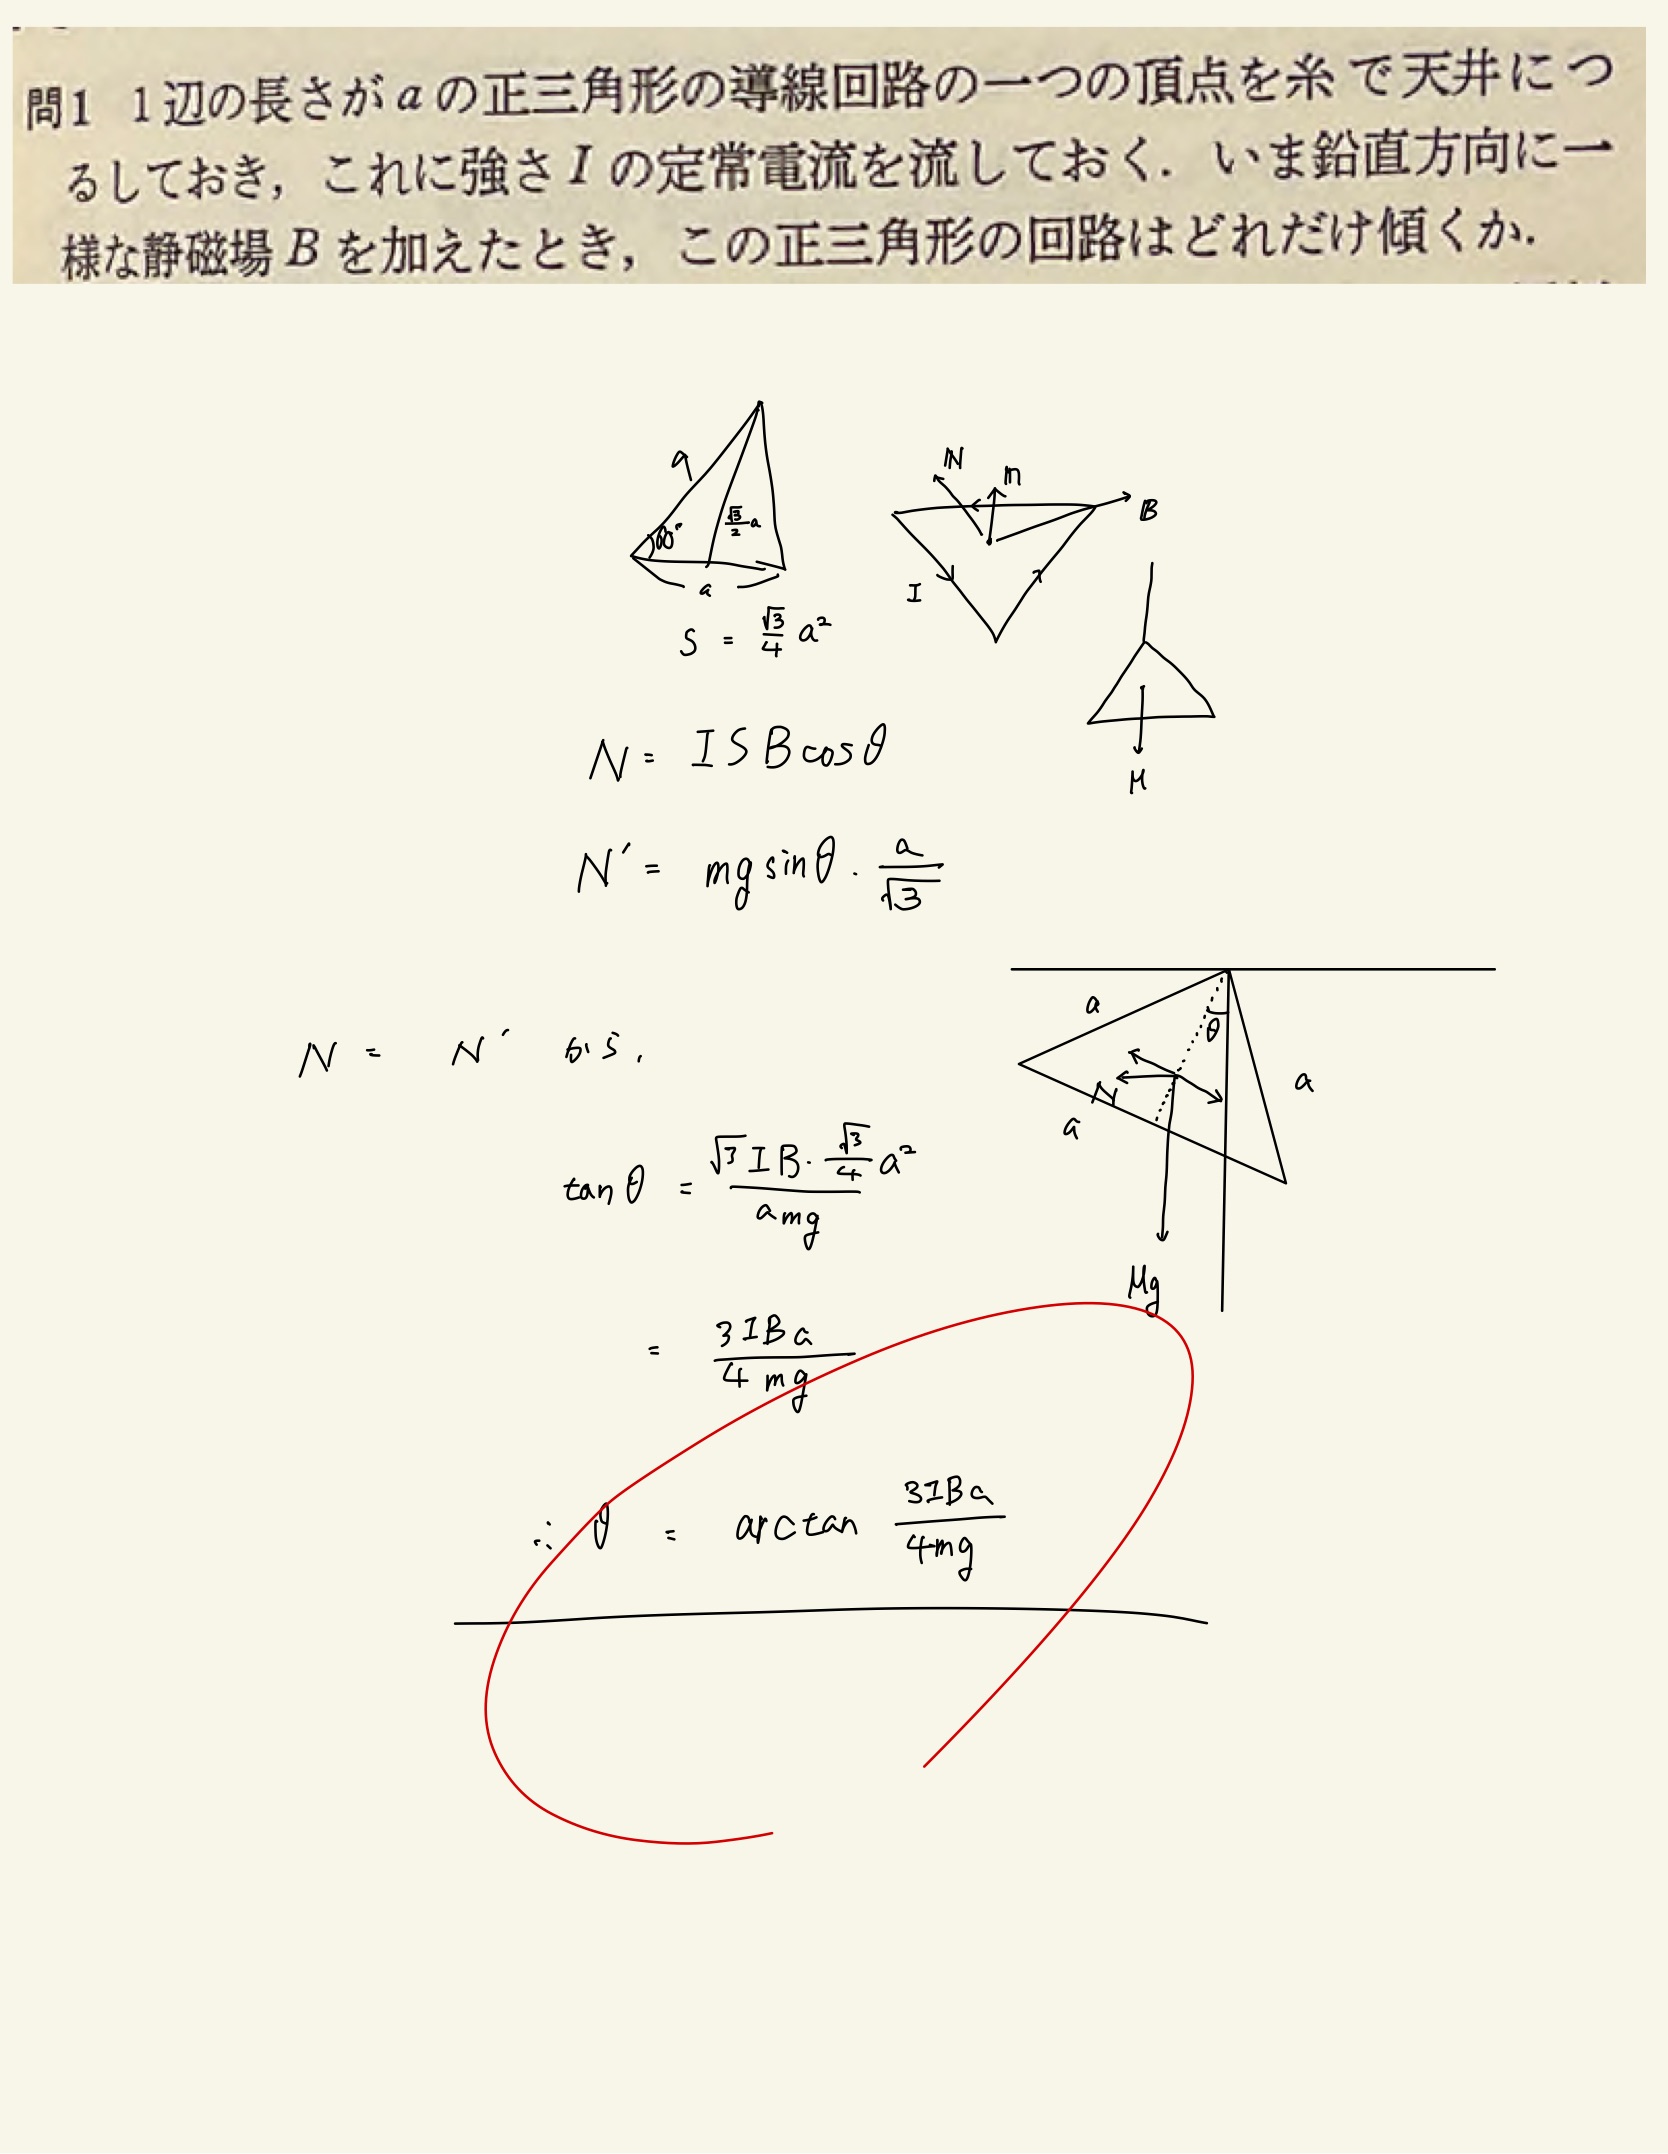 問1 1辺の長さがaの正三角形の導線回路の一つの頂点を糸で天井につ
るしておき，これに強さIの定常電流を流しておく．いま鉛直方向に一
様な静磁場Bを加えたとき，この正三角形の回路はどれだけ傾くか．
a
60°
√3/2 a
a
S = √3/4 a²
N
n
B
I
M
N = ISBcosθ
N′ = mg sinθ · a/√3
N = N′ から，
a
θ
N
a
a
Mg
tanθ = √3IB·√3/4 a² / amg
= 3IBa / 4mg
∴ θ = arctan 3IBa / 4mg